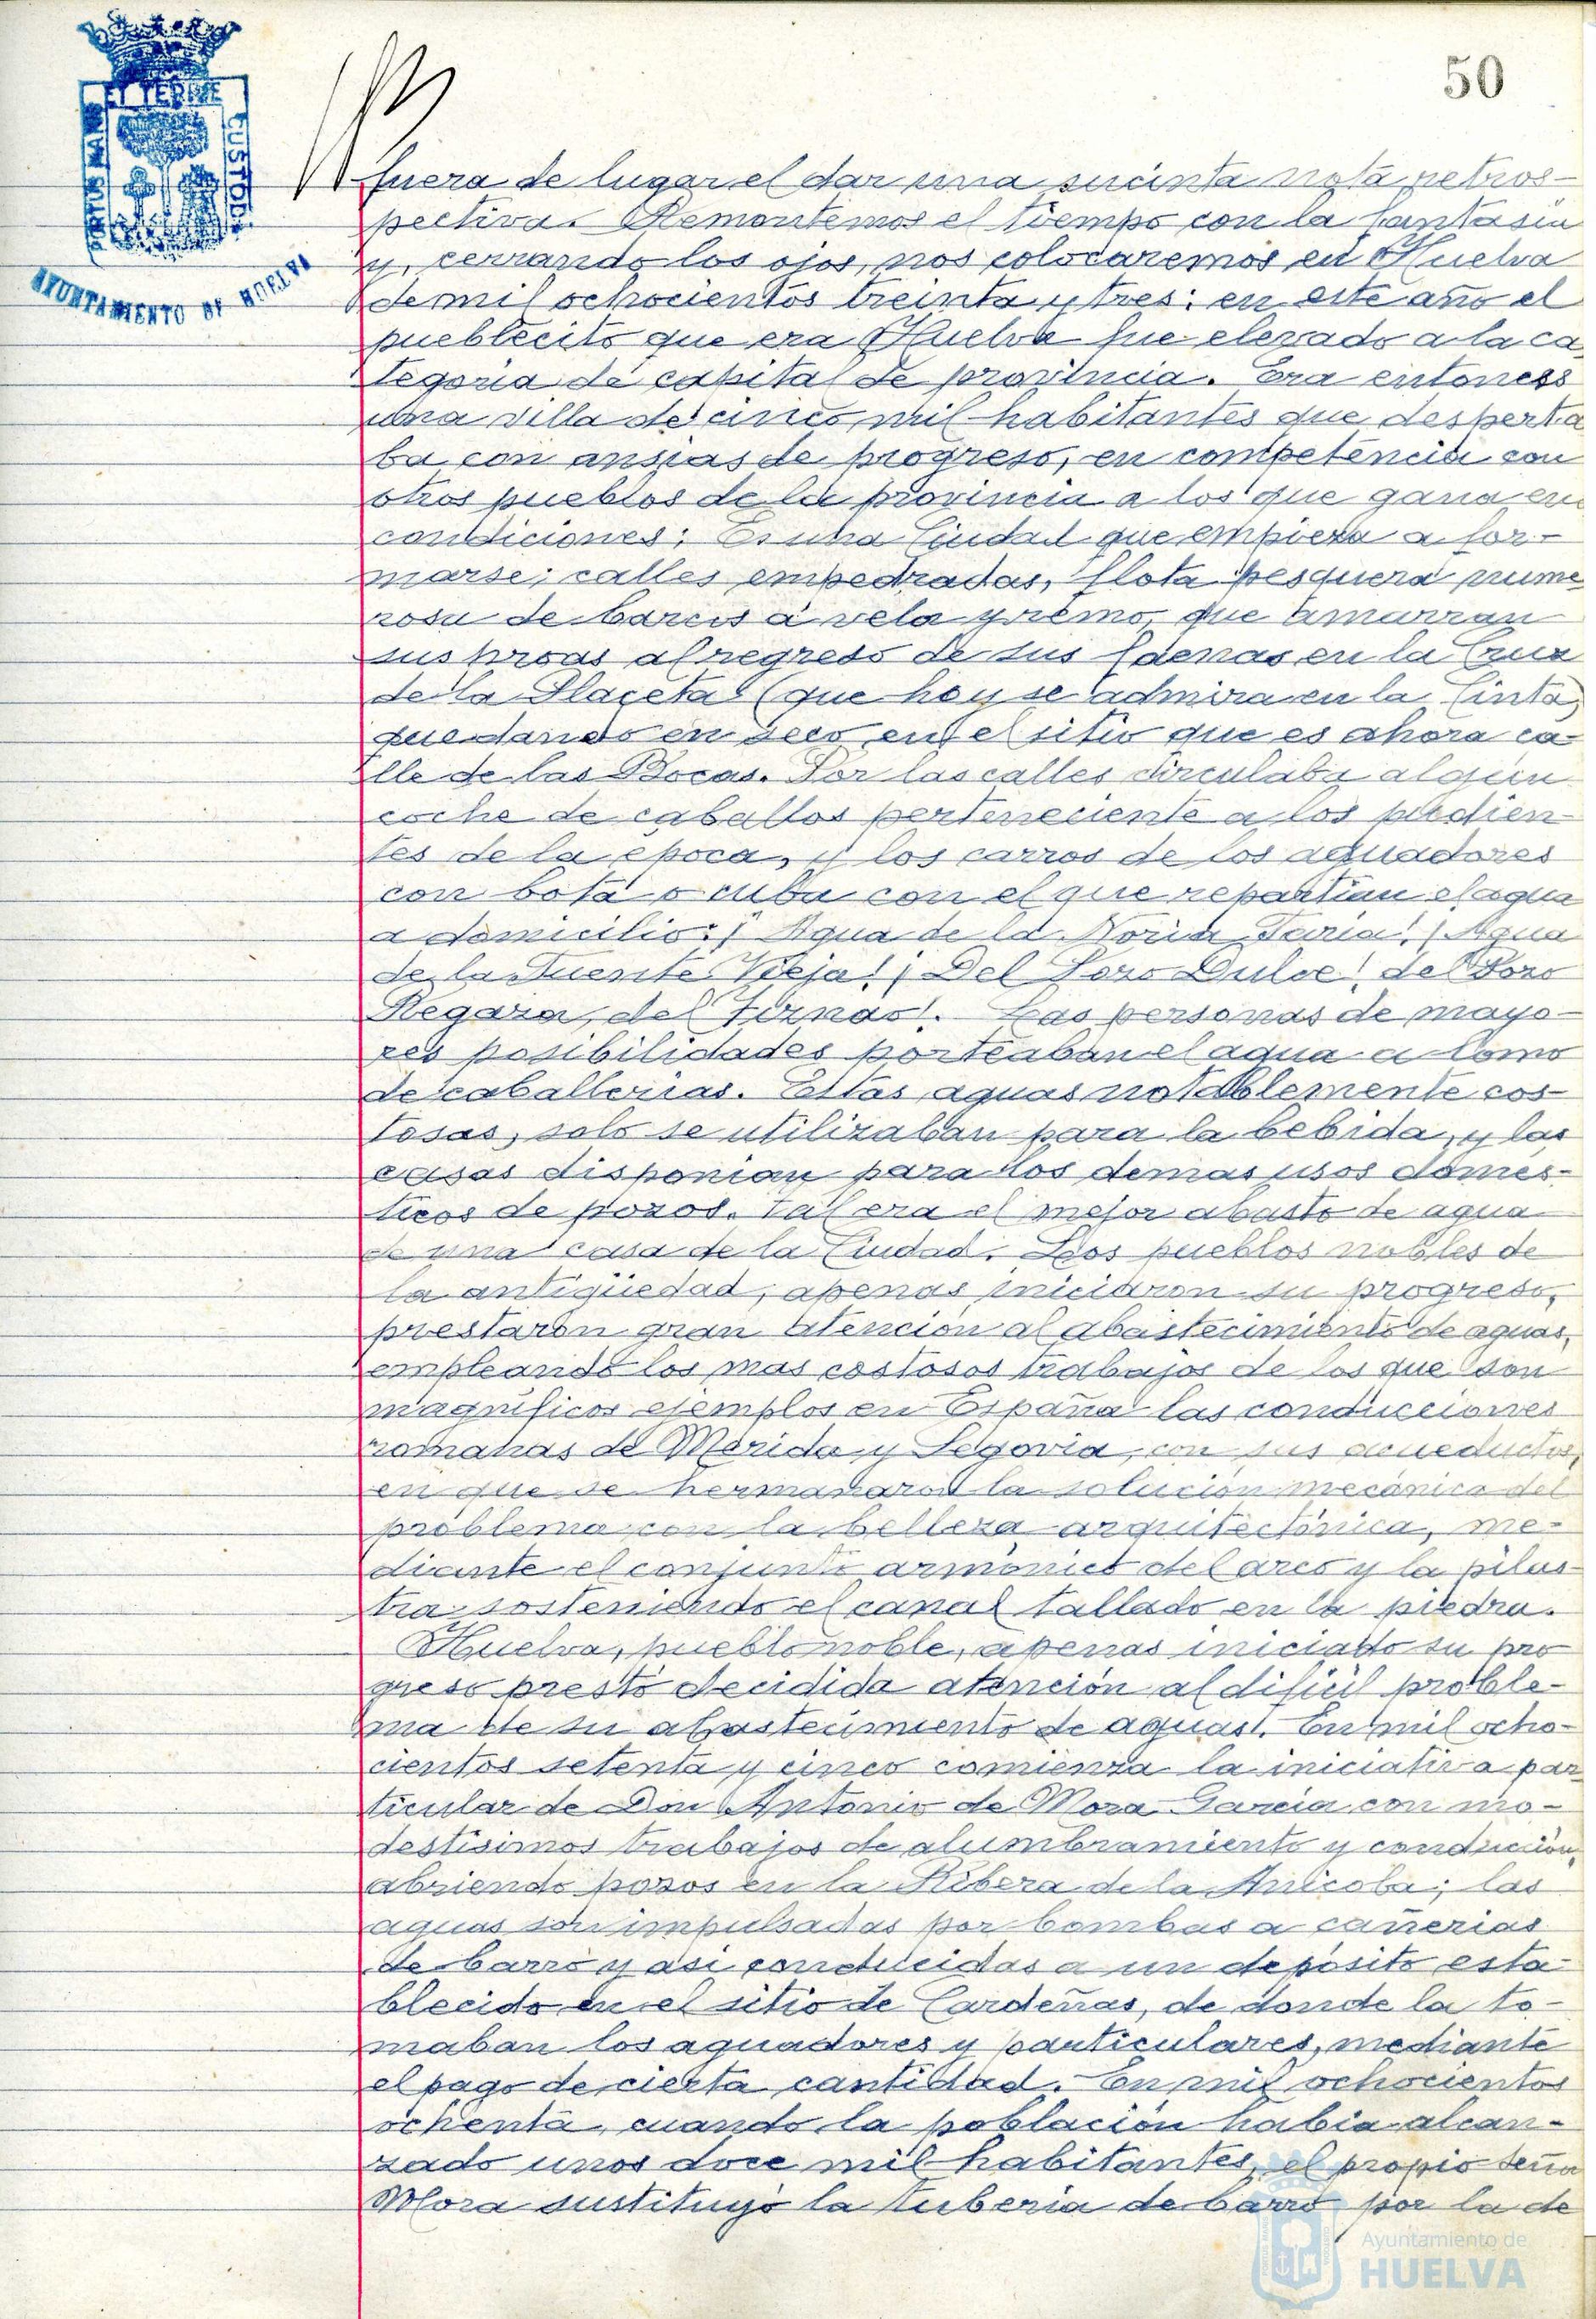 50
PORTUS MARIS
ET TERRE
CUSTODIA
AYUNTAMIENTO DE HUELVA
fuera de lugar el dar una sucinta nota retros-
pectiva. Remontemos el tiempo con la fantasia
y, cerrando los ojos, nos colocaremos en Huelva
de mil ochocientos treinta y tres; en este año el
pueblecito que era Huelva fue elevado a la ca
tegoria de capital de provincia. Era entonces
una villa de cinco mil habitantes que desperta
ba con ansias de progreso, en competencia con
otros pueblos de la provincia a los que gana en
condiciones; Es una Ciudad que empieza a for-
marse; calles empedradas, flota pesquera nume
rosa de barcos a vela y remo, que amarran
sus proas al regreso de sus faenas en la Cruz
de la Placeta (que hoy se admira en la Cinta)
quedando en seco en el sitio que es ahora ca-
lle de las Bocas. Por las calles circulaba algún
coche de caballos perteneciente a los pudien-
tes de la epoca, y los carros de los aguadores
con bota o cuba con el que repartian el agua
a domicilio: ¡Agua de la Noria ! ¡Agua
de la Fuente Vieja! ¡Del Pozo Dulce! del Pozo
, del . Las personas de mayo-
res posibilidades porteaban el agua a lomo
de caballerias. Estas aguas notablemente cos-
tosas, solo se utilizaban para la bebida, y las
casas disponian para los demas usos domes-
ticos de pozos. Tal era el mejor abasto de agua
de una casa de la Ciudad. Los pueblos nobles de
la antigüedad, apenas iniciaron su progreso,
prestaron gran atención al abastecimiento de aguas,
empleando los mas costosos trabajos de los que son
magníficos ejemplos en España las conducciones
romanas de Merida y Segovia, con sus acueductos,
en que se hermanaron la solución mecánica del
problema con la belleza arquitectónica, me-
diante el conjunto armónico del arco y la pilas-
tra sosteniendo el canal tallado en la piedra.
Huelva, pueblo noble, apenas iniciado su pro
greso prestó decidida atención al difícil proble-
ma de su abastecimiento de aguas. En mil ocho-
cientos setenta y cinco comienza la iniciativa par
ticular de Don Antonio de Mora Garcia con mo-
destisimos trabajos de alumbramiento y conducción,
abriendo pozos en la Ribera de la Anicoba; las
aguas son impulsadas por bombas a cañerias
de barro y asi conducidas a un depósito esta-
blecido en el sitio de Cardeñas, de donde la to-
maban los aguadores y particulares, mediante
el pago de cierta cantidad. En mil ochocientos
ochenta, cuando la población habia alcan-
zado unos doce mil habitantes, el propio señor
Mora sustituyó la tuberia de barro por la de
Ayuntamiento de
HUELVA